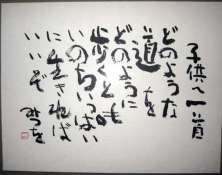 子供へ一首
どのような
道を
どのように
歩くとも
いのちいっぱい
に生きれば
いいぞ みつを